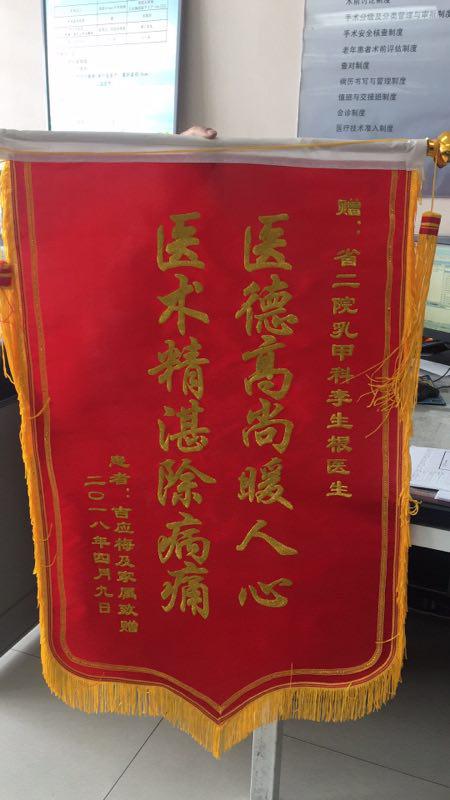 术前讨论制度
手术分级及分类管理与审批制度
手术安全核查制度
老年患者术前评估制度
查对制度
病历书写与管理制度
值班与交接班制度
会诊制度
医疗技术准入制度
赠：省二院乳甲科李生根医生
医德高尚暖人心
医术精湛除病痛
患者：吉应梅及家属致赠
二〇一八年四月九日